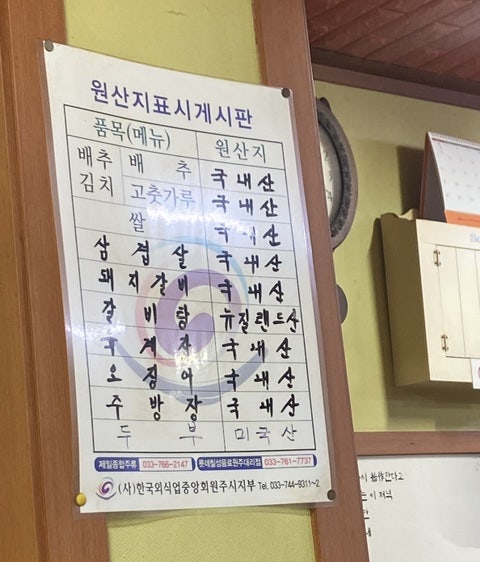 원산지표시게시판
품목(메뉴) 원산지
배추김치 배추 국내산
고춧가루 국내산
쌀 국내산
삼겹살 국내산
돼지갈비 국내산
갈비탕 뉴질랜드산
육개장 국내산
오징어 국내산
주방장 국내산
두부 미국산
제일종합주류 033-766-2147 롯데칠성음료원주대리점 033-761-7737
(사)한국외식업중앙회원주시지부 Tel. 033-744-9311~2